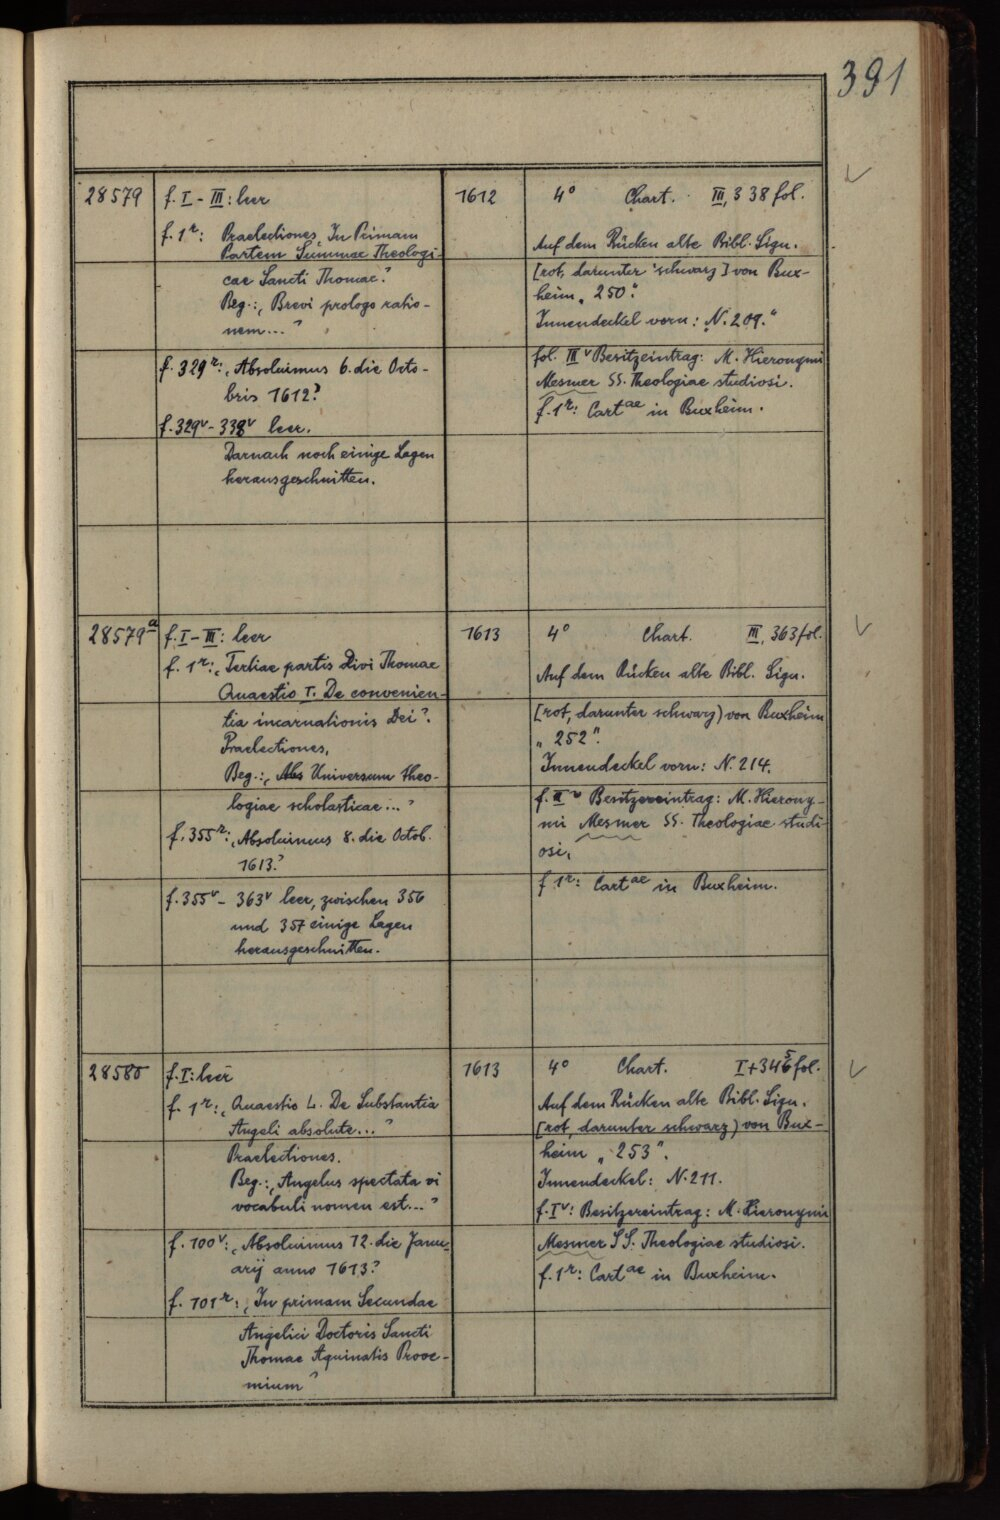 391
28579
f. I - III: leer
f. 1r: Praelectiones „In Primam
Partem Summae Theologi-
cae Sancti Thomae“.
Beg.: „Brevi prologo ratio-
nem...“
f. 329r: „Absoluimus 6. die Octo-
bris 1612“.
f. 329v - 338v leer.
Darnach noch einige Lagen
herausgeschnitten.
1612
4° Chart. III, 338 fol.
Auf dem Rücken alte Bibl. Sign.
[rot, darunter schwarz] von Bux-
heim „250“.
Innendeckel vorn: „N. 209.“
fol. III v Besitzeintrag: M. Hieronymi
Mesmer SS. Theologiae studiosi.
f. 1r: Cartae in Buxheim.
28579a
f. I - III: leer
f. 1r: „Tertiae partis Divi Thomae
Quaestio I. De convenien-
tia incarnationis Dei“.
Praelectiones,
Beg.: „Abs Universum theo-
logiae scholasticae...“
f. 355r: „Absoluimus 8. die Octob.
1613“.
f. 355v - 363v leer, zwischen 356
und 357 einige Lagen
herausgeschnitten.
1613
4° Chart. III, 363 fol.
Auf dem Rücken alte Bibl. Sign.
[rot, darunter schwarz) von Buxheim
„252“.
Innendeckel vorn: N. 214.
f. II v Besitzereintrag: M. Hierony-
mi Mesmer SS. Theologiae studi-
osi,
f. 1r: Cartae in Buxheim.
28580
f. I: leer
f. 1r: „Quaestio L. De Substantia
Angeli absolute...“
Praelectiones.
Beg.: „Angelus spectata vi
vocabuli nomen est...“
f. 100v: „Absoluimus 12. die Janu-
arij anno 1613“.
f. 101r: „In primam Secundae
Angelici Doctoris Sancti
Thomae Aquinatis Prooe-
mium“
1613
4° Chart. I + 345 fol.
Auf dem Rücken alte Bibl. Sign.
[rot, darunter schwarz) von Bux-
heim „253“.
Innendeckel: N. 211.
f. Iv: Besitzereintrag: M. Hieronymi
Mesmer SS. Theologiae studiosi.
f. 1r: Cartae in Buxheim.